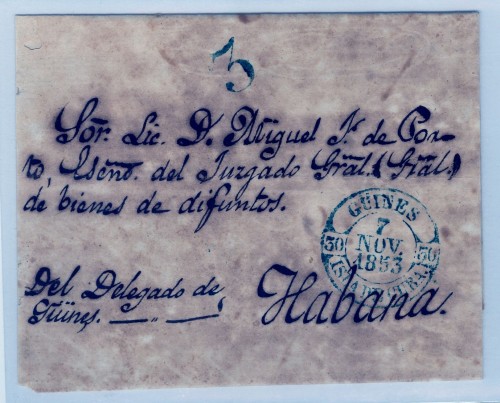 3
Sōr. Lic. D. Miguel F. de Por-
to, Escñō. del Juzgado Gral. (Gral.)
de bienes de difuntos.
GÜINES
7
NOV.
1853
30 30
Del Delegado de
Güines.
Habana.